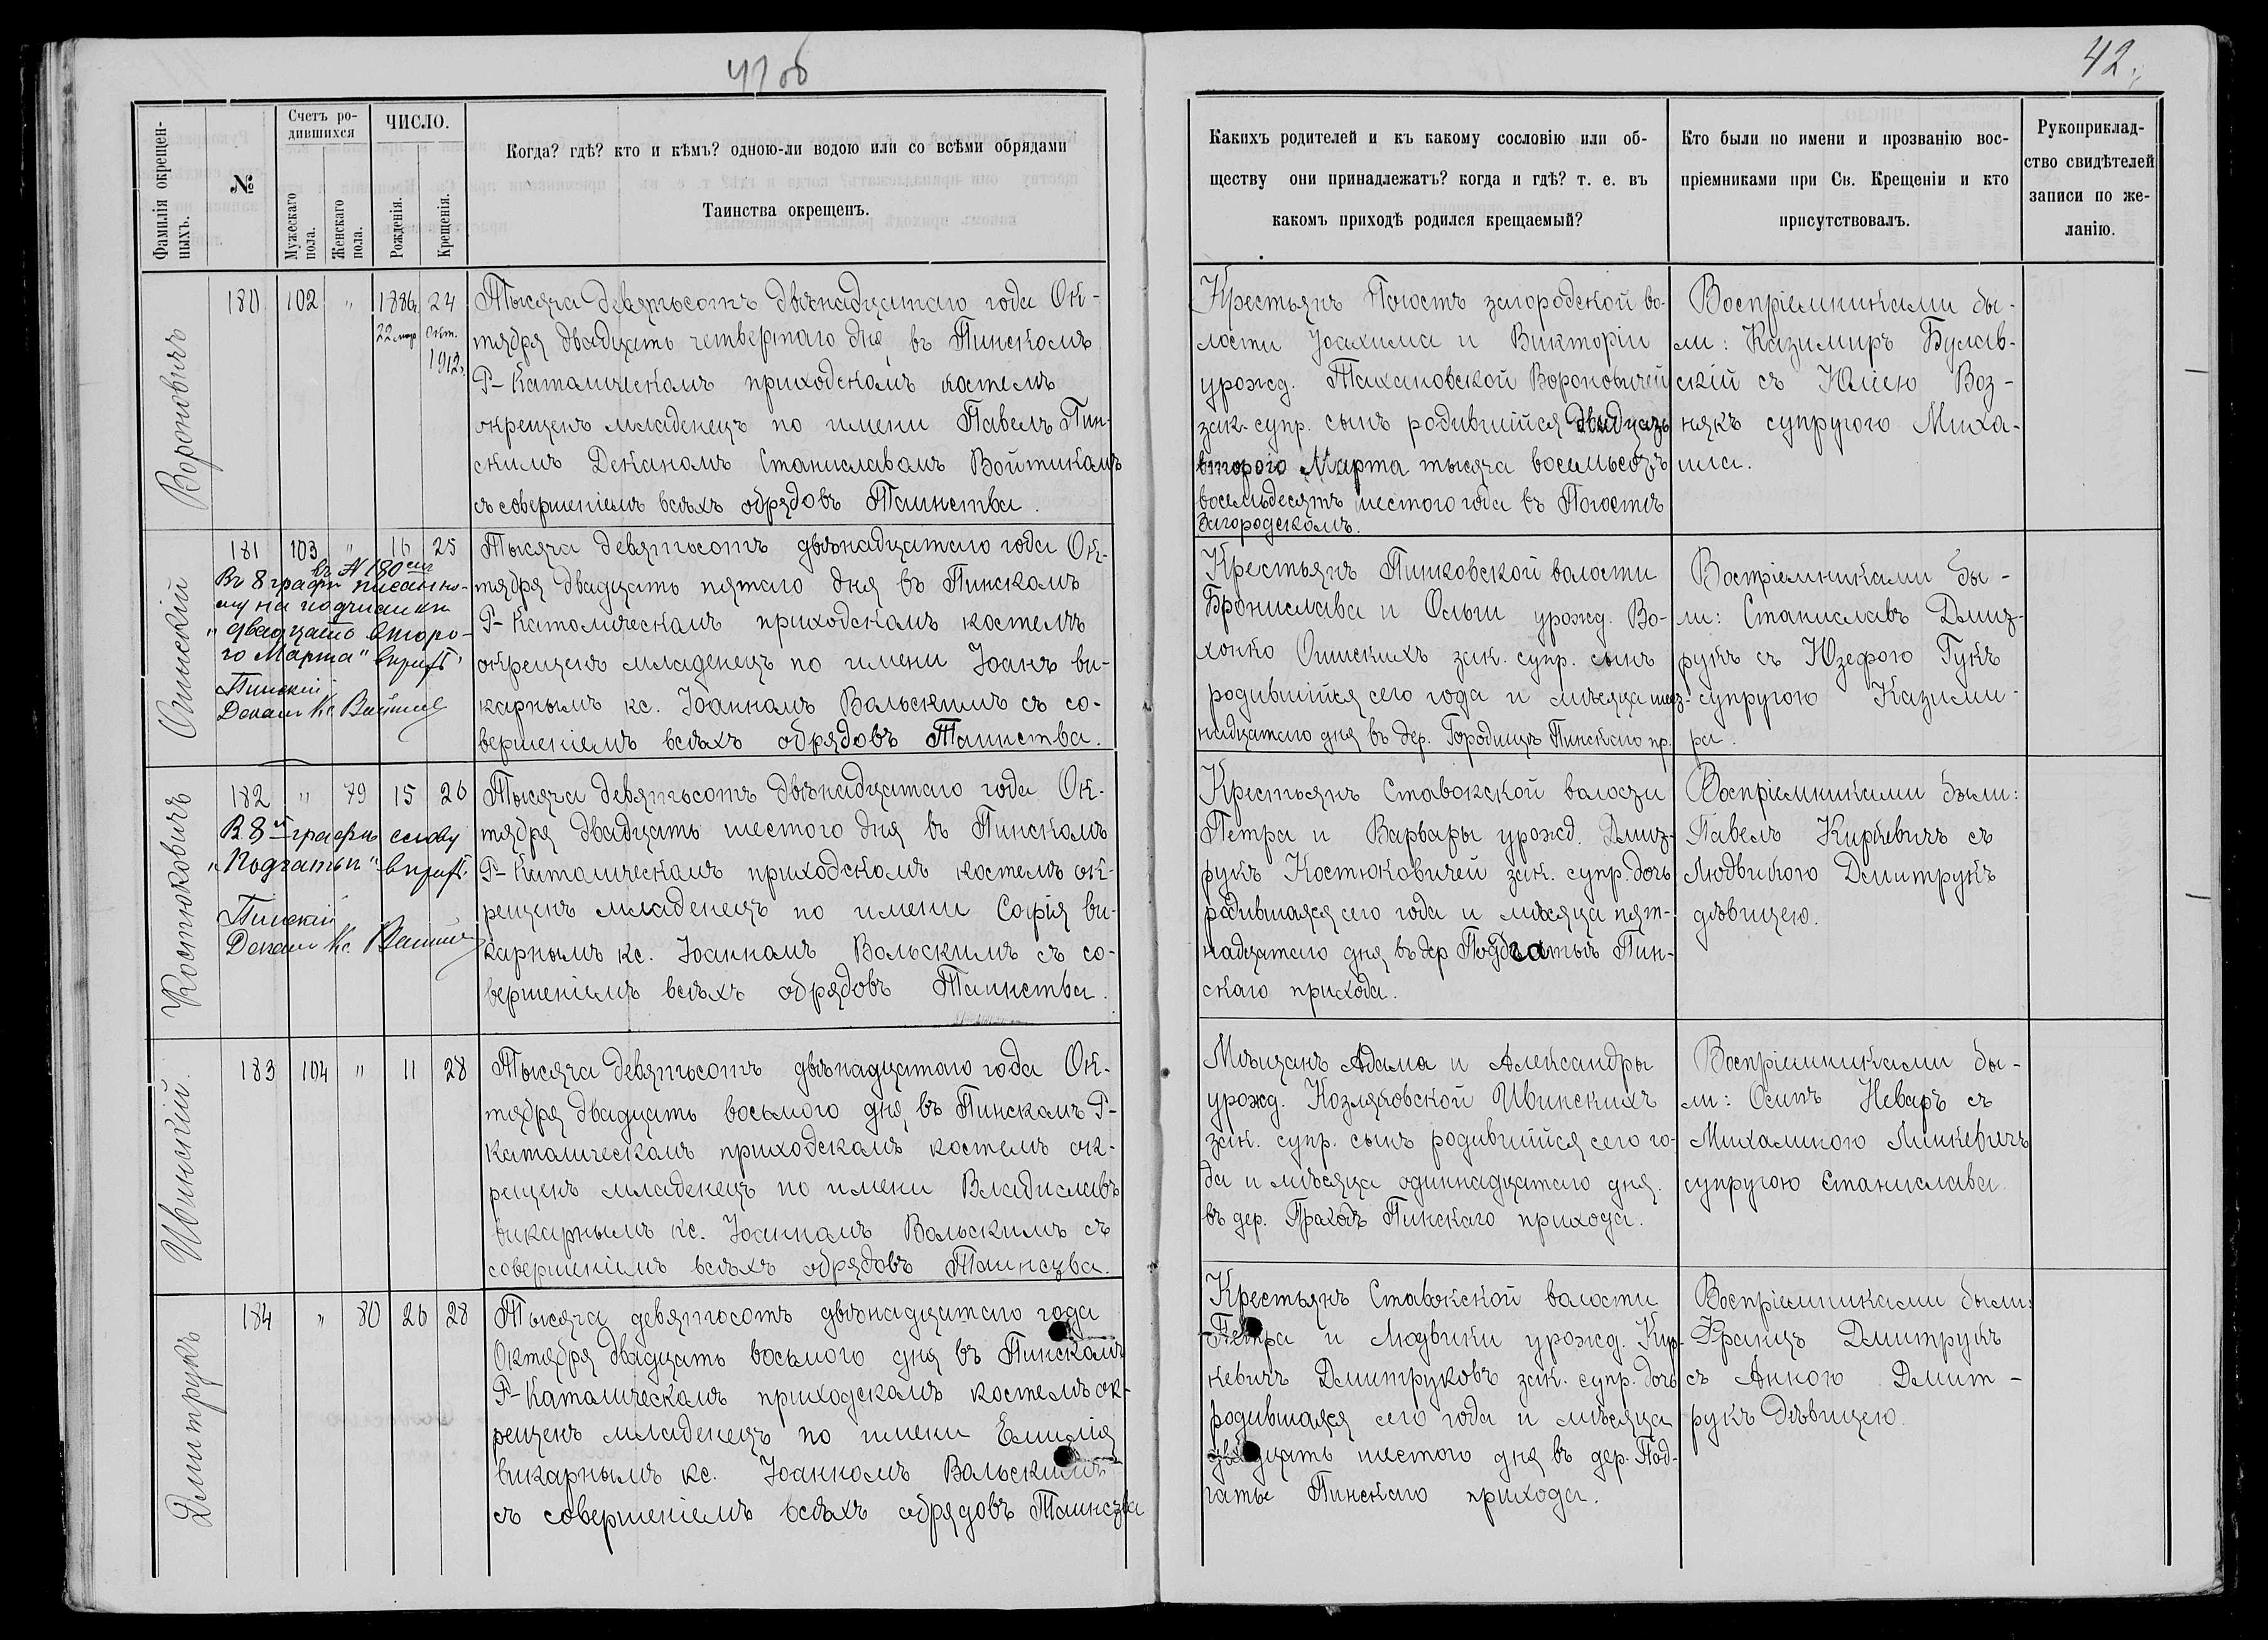 41 об
42.
Фамилія окрещен-
ныхъ.
№
Счетъ ро-
дившихся
Мужескаго
пола.
Женскаго
пола.
ЧИСЛО.
Рожденія.
Крещенія.
Когда? гдѣ? кто и кѣмъ? одною-ли водою или со всѣми обрядами
Таинства окрещенъ.
Какихъ родителей и къ какому сословію или об-
ществу они принадлежатъ? когда и гдѣ? т. е. въ
какомъ приходѣ родился крещаемый?
Кто были по имени и прозванію вос-
пріемниками при Св. Крещеніи и кто
присутствовалъ.
Рукоприклад-
ство свидѣтелей
записи по же-
ланію.
Вороновичъ
180 102 " 1886 24
22 мар окт.
1912.
Тысяча девятьсотъ двѣнадцатаго года Ок-
тября двадцать четвертаго дня въ Пинскомъ
Р-Католическомъ приходскомъ костелѣ
окрещенъ младенецъ по имени Павелъ Пин-
скимъ Деканомъ Станиславомъ Войтикомъ
съ совершеніемъ всѣхъ обрядовъ Таинства.
Крестьянъ Погостъ загородской во-
лости Іоахима и Викторіи
урожд. Вороновичей
зак. супр. сынъ родившійся двадцать
второго Марта тысяча восемьсотъ
восемьдесятъ шестого года въ Погостѣ
Загородскомъ.
Воспріемниками бы-
ли: Казимиръ Булав-
скій съ Юліею Воз-
някъ супругою Миха-
ила.
Ошискій
181 103 " 16 25
въ № 180
Въ 8 графѣ писанно-
му на подчистке
"двадцать второ-
го Марта" вѣрить
Пинскій
Деканъ Кс. Войтикъ
Тысяча девятьсотъ двѣнадцатаго года Ок-
тября двадцать пятаго дня въ Пинскомъ
Р-Католическомъ приходскомъ костелѣ
окрещенъ младенецъ по имени Іоанъ ви-
карнымъ кс. Іоанномъ Вольскимъ съ со-
вершеніемъ всѣхъ обрядовъ Таинства.
Крестьянъ Пинковской волости
Бронислава и Ольги урожд. Во-
хонко Ошискихъ зак. супр. сынъ
родившійся сего года и мѣсяца шест-
надцатаго дня въ дер. Городищѣ Пинскаго пр.
Воспріемниками бы-
ли: Станиславъ Дмит-
рукъ съ Юзефою Гукъ
супругою Казими-
ра.
Костюковичъ
182 " 79 15 26
В 8й графѣ слову
"Подгатьи" вѣрить
Пинскій
Деканъ Кс. Войтикъ
Тысяча девятьсотъ двѣнадцатаго года Ок-
тября двадцать шестого дня въ Пинскомъ
Р-Католическомъ приходскомъ костелѣ ок-
рещенъ младенецъ по имени Софія ви-
карнымъ кс. Іоанномъ Вольскимъ съ со-
вершеніемъ всѣхъ обрядовъ Таинства.
Крестьянъ Ставокской волости
Петра и Варвары урожд. Дмит-
рукъ Костюковичей зак. супр. дочь
родившаяся сего года и мѣсяца пят-
надцатаго дня въ дер Подгатьѣ Пин-
скаго прихода.
Воспріемниками были:
Павелъ Киркевичъ съ
Людвикою Дмитрукъ
дѣвицею.
Ивинскій.
183 104 " 11 28
Тысяча девятьсотъ двѣнадцатаго года Ок-
тября двадцать восьмого дня въ Пинскомъ Р-
католическомъ приходскомъ костелѣ ок-
рещенъ младенецъ по имени Владиславъ
викарнымъ кс. Іоанномъ Вольскимъ съ
совершеніемъ всѣхъ обрядовъ Таинства.
Мѣщанъ Адама и Александры
урожд. Козляковской Ивинскихъ
зак. супр. сынъ родившійся сего го-
да и мѣсяца одиннадцатаго дня
въ дер. Пинскаго прихода.
Воспріемниками бы-
ли: Осипъ Неваръ съ
Михалиною Линкевичъ
супругою Станислава
Дмитрукъ
184 " 80 26 28
Тысяча девятьсотъ двѣнадцатаго года
Октября двадцать восьмого дня въ Пинскомъ
Р-Католическомъ приходскомъ костелѣ ок-
рещенъ младенецъ по имени Емилія
викарнымъ кс. Іоанномъ Вольскимъ
съ совершеніемъ всѣхъ обрядовъ Таинства
Крестьянъ Ставокской волости
Петра и Людвики урожд. Кир-
кевичъ Дмитруковъ зак. супр. дочь
родившаяся сего года и мѣсяца
двадцать шестого дня въ дер. Под-
гатье Пинскаго прихода.
Воспріемниками были:
Францъ Дмитрукъ
съ Анною Дмит-
рукъ дѣвицею.